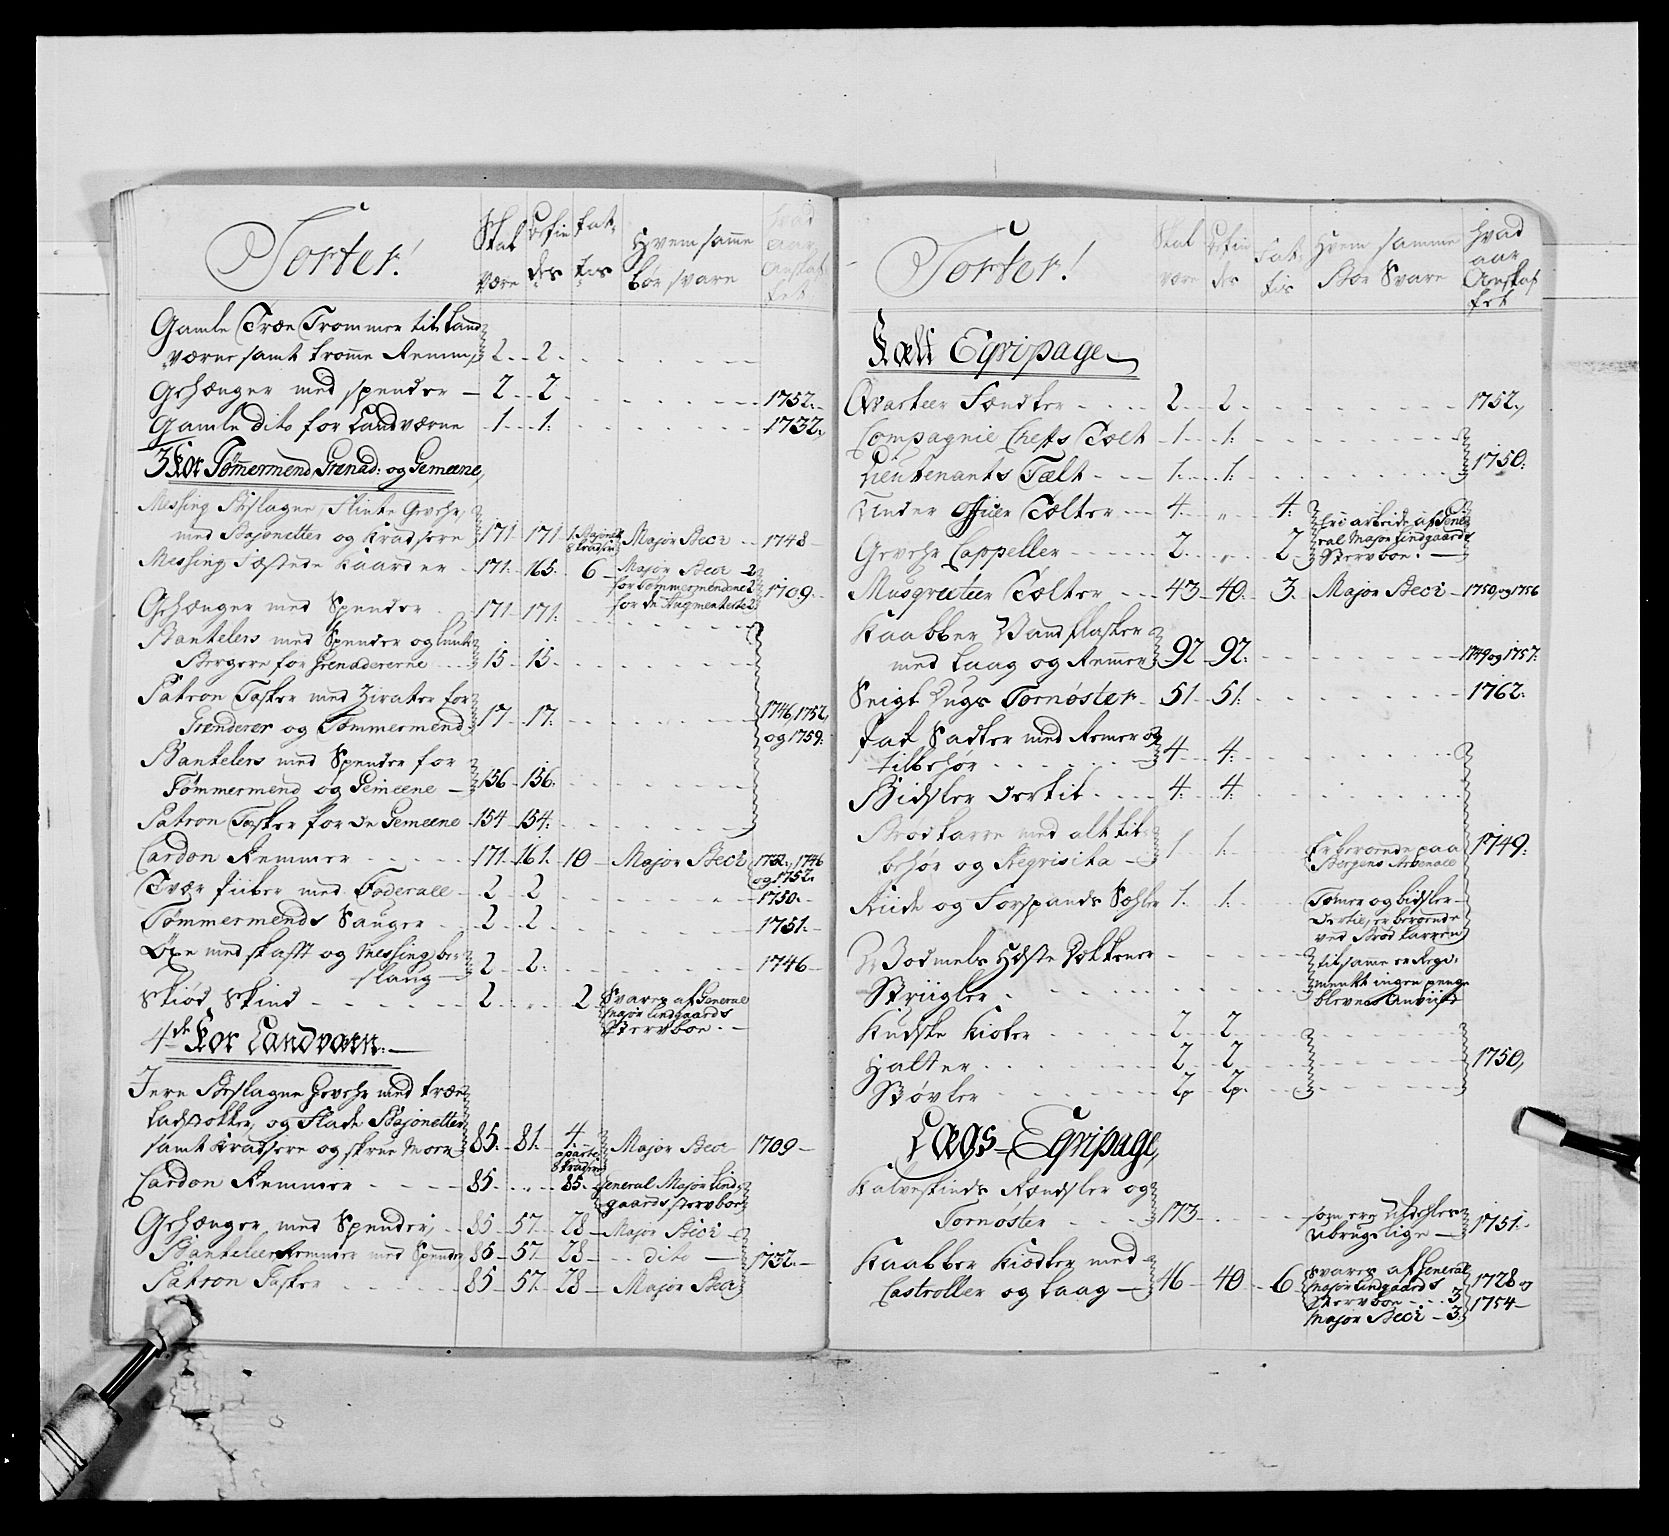 Sorter!
Skal være
Befindes
Fattes
Hvem samme bør svare
hvad aar Anskaffet
Gamle Træe Trommer til Land
værne samt tromme Remm, 2 2
Gehænger med spender 2 2 1752.
Gamle dito for Landværne 1 1. 1732.
3 For Tømmermend, Grenad: og Gemeene
Messing Beslagne, Flinte Gevehr,
med Bajonetter og Kradsere 171 171 Major Beck 1748
Messing Fæstede Kaarder 171. 165. 6 Major Beck 2
for Tømmermendene 2
for de Augmenterte 2 1709.
Gehænger med Spender 171 171.
Bantelers med Spender og Lunte
Bergere for Grenadererne 15 15.
Patron Tasker med Zirater for
Grenderer og Tømmermend 17 17. 1746, 1752,
og 1759.
Bantelers med Spender for
Tømmermend og Gemeene 156 156.
Patron Tasker for de Gemeene 154 154.
Cardon Remmer 171. 161. 10 Major Beck 1732., 1746
og 1752.
Tvær Piiber med Foderall 2 2 1750.
Tømmermends Sauger 2 2 1751.
Øxe med skafft og Messing be-
slaug 2 2. 1746
Skiød Skind 2 „ 2 Svares af General
Major Lindgaards
Stervboe.
4de For Landværn.
Jern Beslagne Gevehr med træe
Ladstokker, og Flade Bajonetter
samt Kradsere og skrue 85. 81. 4. Major Beck 1709
Cardon Remmer 85 „ 85. General Major Lind-
gaards stervboe
Gehænger med Spender 85 57. 28 Major Beck
Banteleer Remmer med Spender 85 57. 28 dito 1732.
Patron Tasker 85 57. 28 Major Beck
Sorter!
Skal være
Befindes
Fattes
Hvem samme Bør Svare
hvad aar Anskaffet
Feldt Eqvipage
Qvarteer Fændker 2 2 1752.
Compagnie Chefs Telt 1 1.
Lieutenants Telt 1. 1. 1750.
Under Officer Telter 4. „ 4. Er i arbeide af Gene-
ral Major Lindgaards
Gevehr Cappeller 2. „ 2 Stervboe.
Musqveteer Telter 43 40. 3. Major Beck 1750, og 1756
Kaabber Vandflasker
med Laag og Remmer 92 92. 1749 og 1757.
Seigl Dugs Tornøster 51 51. 1762.
Pak Sadler med Remer og
tilbehør 4. 4.
Bidsler dertil 4. 4.
Brød karre med alt til-
behør og Reqvisita 1 1. Er beroende paa
Bergens Arsenall 1749.
Riide og Forspands Sehler 1. 1. Tømer og bidsler
dertil, er beroende
ved Brød karren
Vodmels Heste Dekkener til samme er Regi-
Striigler mentet ingen penge
bleven Anviiste
Kudske Kioler 2 2
Halter 2 2 1750,
Støvler 2p 2p.
Lags Eqvipage,
Kalveskinds Rændsler og
Tornøster 173 som ere Udeelte
Ubrugelige 1751.
Kaabber Kiedler med
Castroller og Laag 46 40 6 svares af General
Major Lindgaards
Stervboe 3
Major Beck 3. 1728 og
1754